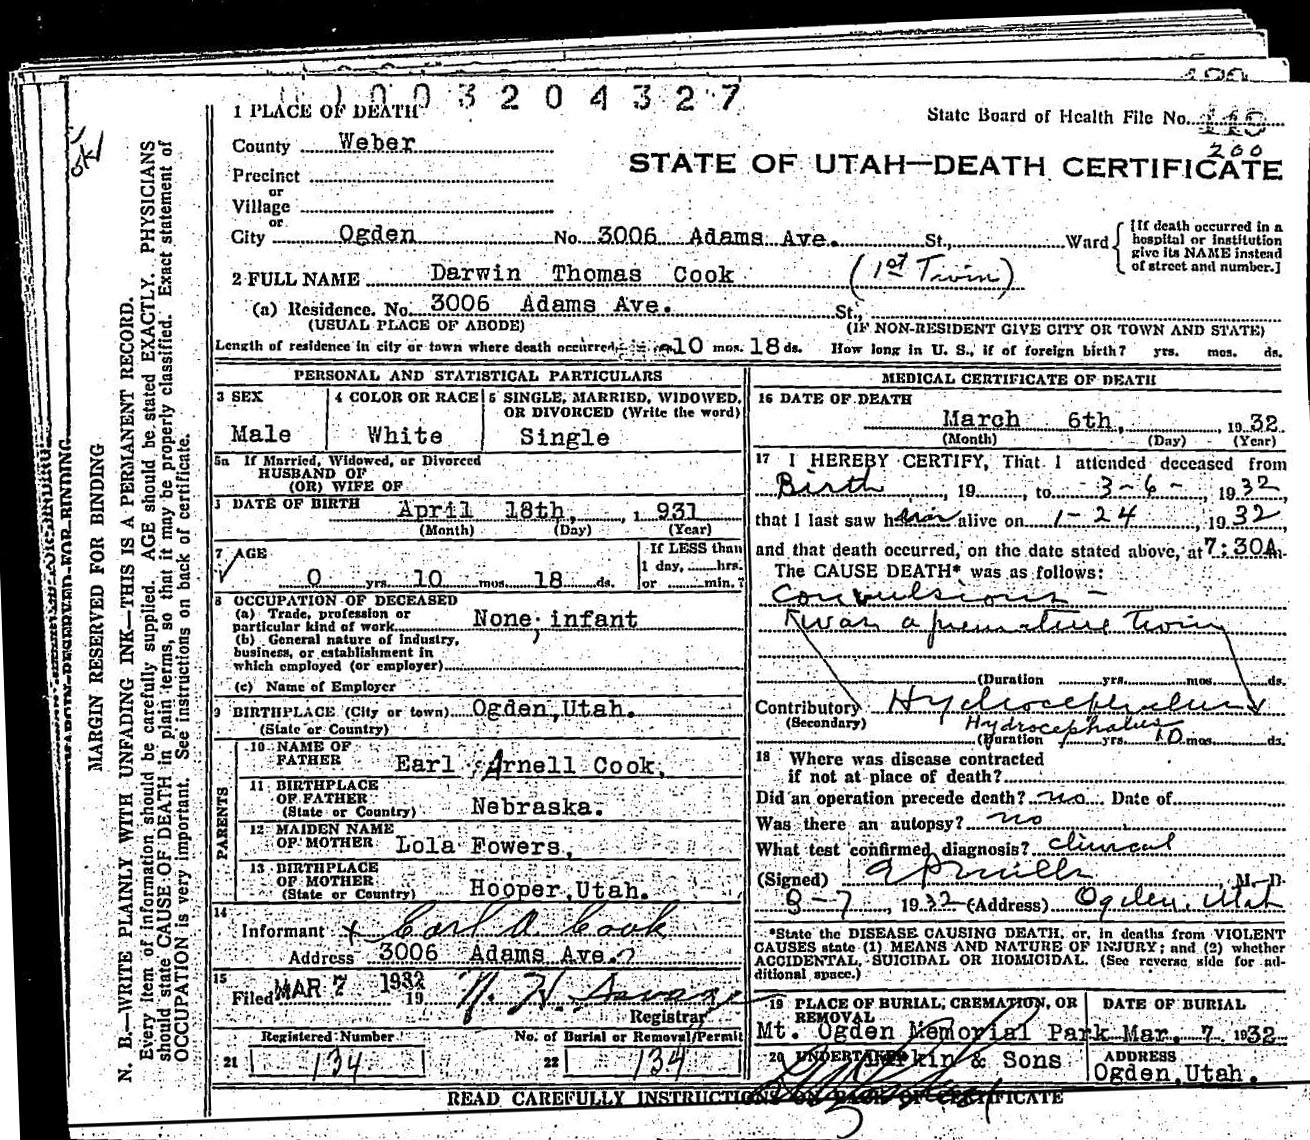 0 0 3 2 0 4 3 2 7
1 PLACE OF DEATH
State Board of Health File No.
200
County Weber
STATE OF UTAH—DEATH CERTIFICATE
Precinct
or
Village
or
City Ogden No. 3006 Adams Ave. St., Ward
[If death occurred in a hospital or institution give its NAME instead of street and number.]
2 FULL NAME Darwin Thomas Cook (1st Twin)
(a) Residence. No. 3006 Adams Ave. St.,
(USUAL PLACE OF ABODE) (IF NON-RESIDENT GIVE CITY OR TOWN AND STATE)
Length of residence in city or town where death occurred 10 mos. 18 ds. How long in U. S., if of foreign birth? yrs. mos. ds.
PERSONAL AND STATISTICAL PARTICULARS
3 SEX
Male
4 COLOR OR RACE
White
5 SINGLE, MARRIED, WIDOWED, OR DIVORCED (Write the word)
Single
5a If Married, Widowed, or Divorced
HUSBAND OF
(OR) WIFE OF
DATE OF BIRTH April 18th, 1 931
(Month) (Day) (Year)
7 AGE
0 yrs. 10 mos. 18 ds.
If LESS than
1 day, hrs.
or min.?
8 OCCUPATION OF DECEASED
(a) Trade, profession or
particular kind of work None, infant
(b) General nature of industry,
business, or establishment in
which employed (or employer)
(c) Name of Employer
9 BIRTHPLACE (City or town) Ogden, Utah.
(State or Country)
PARENTS
10 NAME OF FATHER Earl Arnell Cook,
11 BIRTHPLACE OF FATHER (State or Country) Nebraska.
12 MAIDEN NAME OF MOTHER Lola Fowers,
13 BIRTHPLACE OF MOTHER (State or Country) Hooper, Utah.
14
Informant x Earl A. Cook
Address 3006 Adams Ave.
15
Filed MAR 7 1932 19 Registrar
Registered Number
21 134
No. of Burial or Removal Permit
22 134
MEDICAL CERTIFICATE OF DEATH
16 DATE OF DEATH
March 6th, 1932
(Month) (Day) (Year)
17 I HEREBY CERTIFY, That I attended deceased from
Birth, 19, to 3-6-, 1932,
that I last saw him alive on 1-24, 1932
and that death occurred, on the date stated above, at 7:30A m.
The CAUSE DEATH* was as follows:
Convulsions -
Was a premature twin
(Duration yrs. mos. ds.
Contributory Hydrocephalus
(Secondary) Hydrocephalus
(Duration yrs. 10 mos. ds.
18 Where was disease contracted
if not at place of death?
Did an operation precede death? no Date of
Was there an autopsy? no
What test confirmed diagnosis? clinical
(Signed) M. D.
3-7, 1932 (Address) Ogden, Utah
*State the DISEASE CAUSING DEATH, or, in deaths from VIOLENT
CAUSES state (1) MEANS AND NATURE OF INJURY; and (2) whether
ACCIDENTAL, SUICIDAL OR HOMICIDAL. (See reverse side for additional space.)
19 PLACE OF BURIAL, CREMATION, OR REMOVAL
Mt. Ogden Memorial Park
DATE OF BURIAL
Mar. 7, 1932
20 UNDERTAKER & Sons
ADDRESS
Ogden, Utah.
READ CAREFULLY INSTRUCTIONS ON BACK OF CERTIFICATE
ok
MARGIN RESERVED FOR BINDING
N. B.—WRITE PLAINLY WITH UNFADING INK—THIS IS A PERMANENT RECORD.
Every item of information should be carefully supplied. AGE should be stated EXACTLY. PHYSICIANS
should state CAUSE OF DEATH in plain terms, so that it may be properly classified. Exact statement of
OCCUPATION is very important. See instructions on back of certificate.